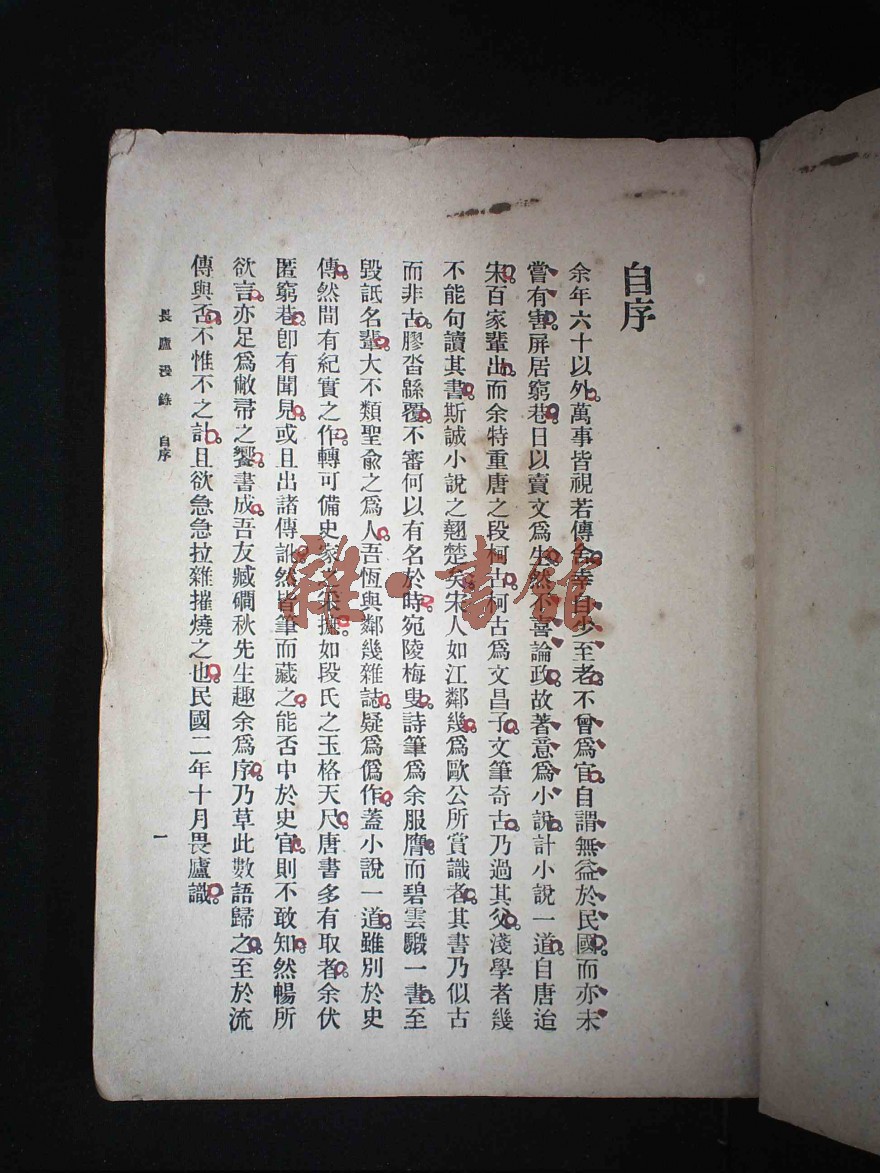 自序
余年六十以外萬事皆視若傳舍幸自少至老不曾爲官自謂無益於民國而亦未
嘗有害屏居窮巷日以賣文爲生然不喜論政故著意爲小說計小說一道自唐迨
宋百家輩出而余特重唐之段柯古柯古爲文昌子文筆奇古乃過其父淺學者幾
不能句讀其書斯誠小說之翹楚矣宋人如江鄰幾爲歐公所賞識者其書乃似古
而非古膠沓緜覆不審何以有名於時宛陵梅叟詩筆爲余服膺而碧雲騢一書至
毀詆名輩大不類聖俞之爲人吾恆與鄰幾雜誌疑爲僞作蓋小說一道雖別於史
傳然間有紀實之作轉可備史家之采摭如段氏之玉格天尺唐書多有取者余伏
匿窮巷卽有聞見或且出諸傳訛然皆筆而藏之能否中於史官則不敢知然暢所
欲言亦足爲敝帚之饗書成吾友臧磵秋先生趣余爲序乃草此數語歸之至於流
傳與否不惟不之計且欲急急拉雜摧燒之也民國二年十月畏廬識
畏廬漫錄 自序
一
雜·書館